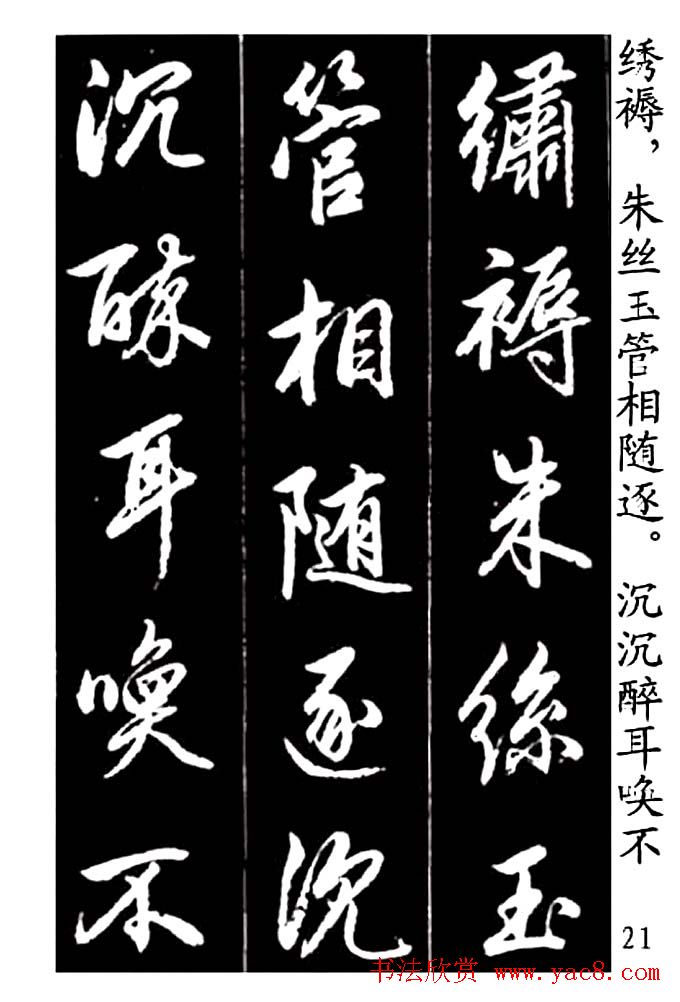 绣褥，朱丝玉管相随逐。沉沉醉耳唤不
繡褥朱絲玉
管相随逐沉
沉醉耳唤不
21
书法欣赏 www.yac8.com